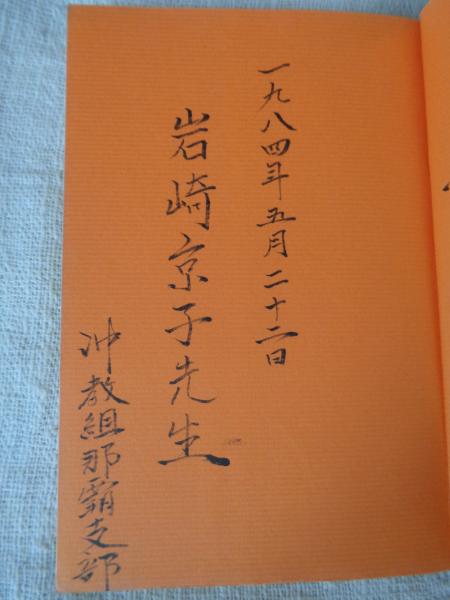 一九八四年五月二十二日
岩崎京子先生
沖教組那覇支部